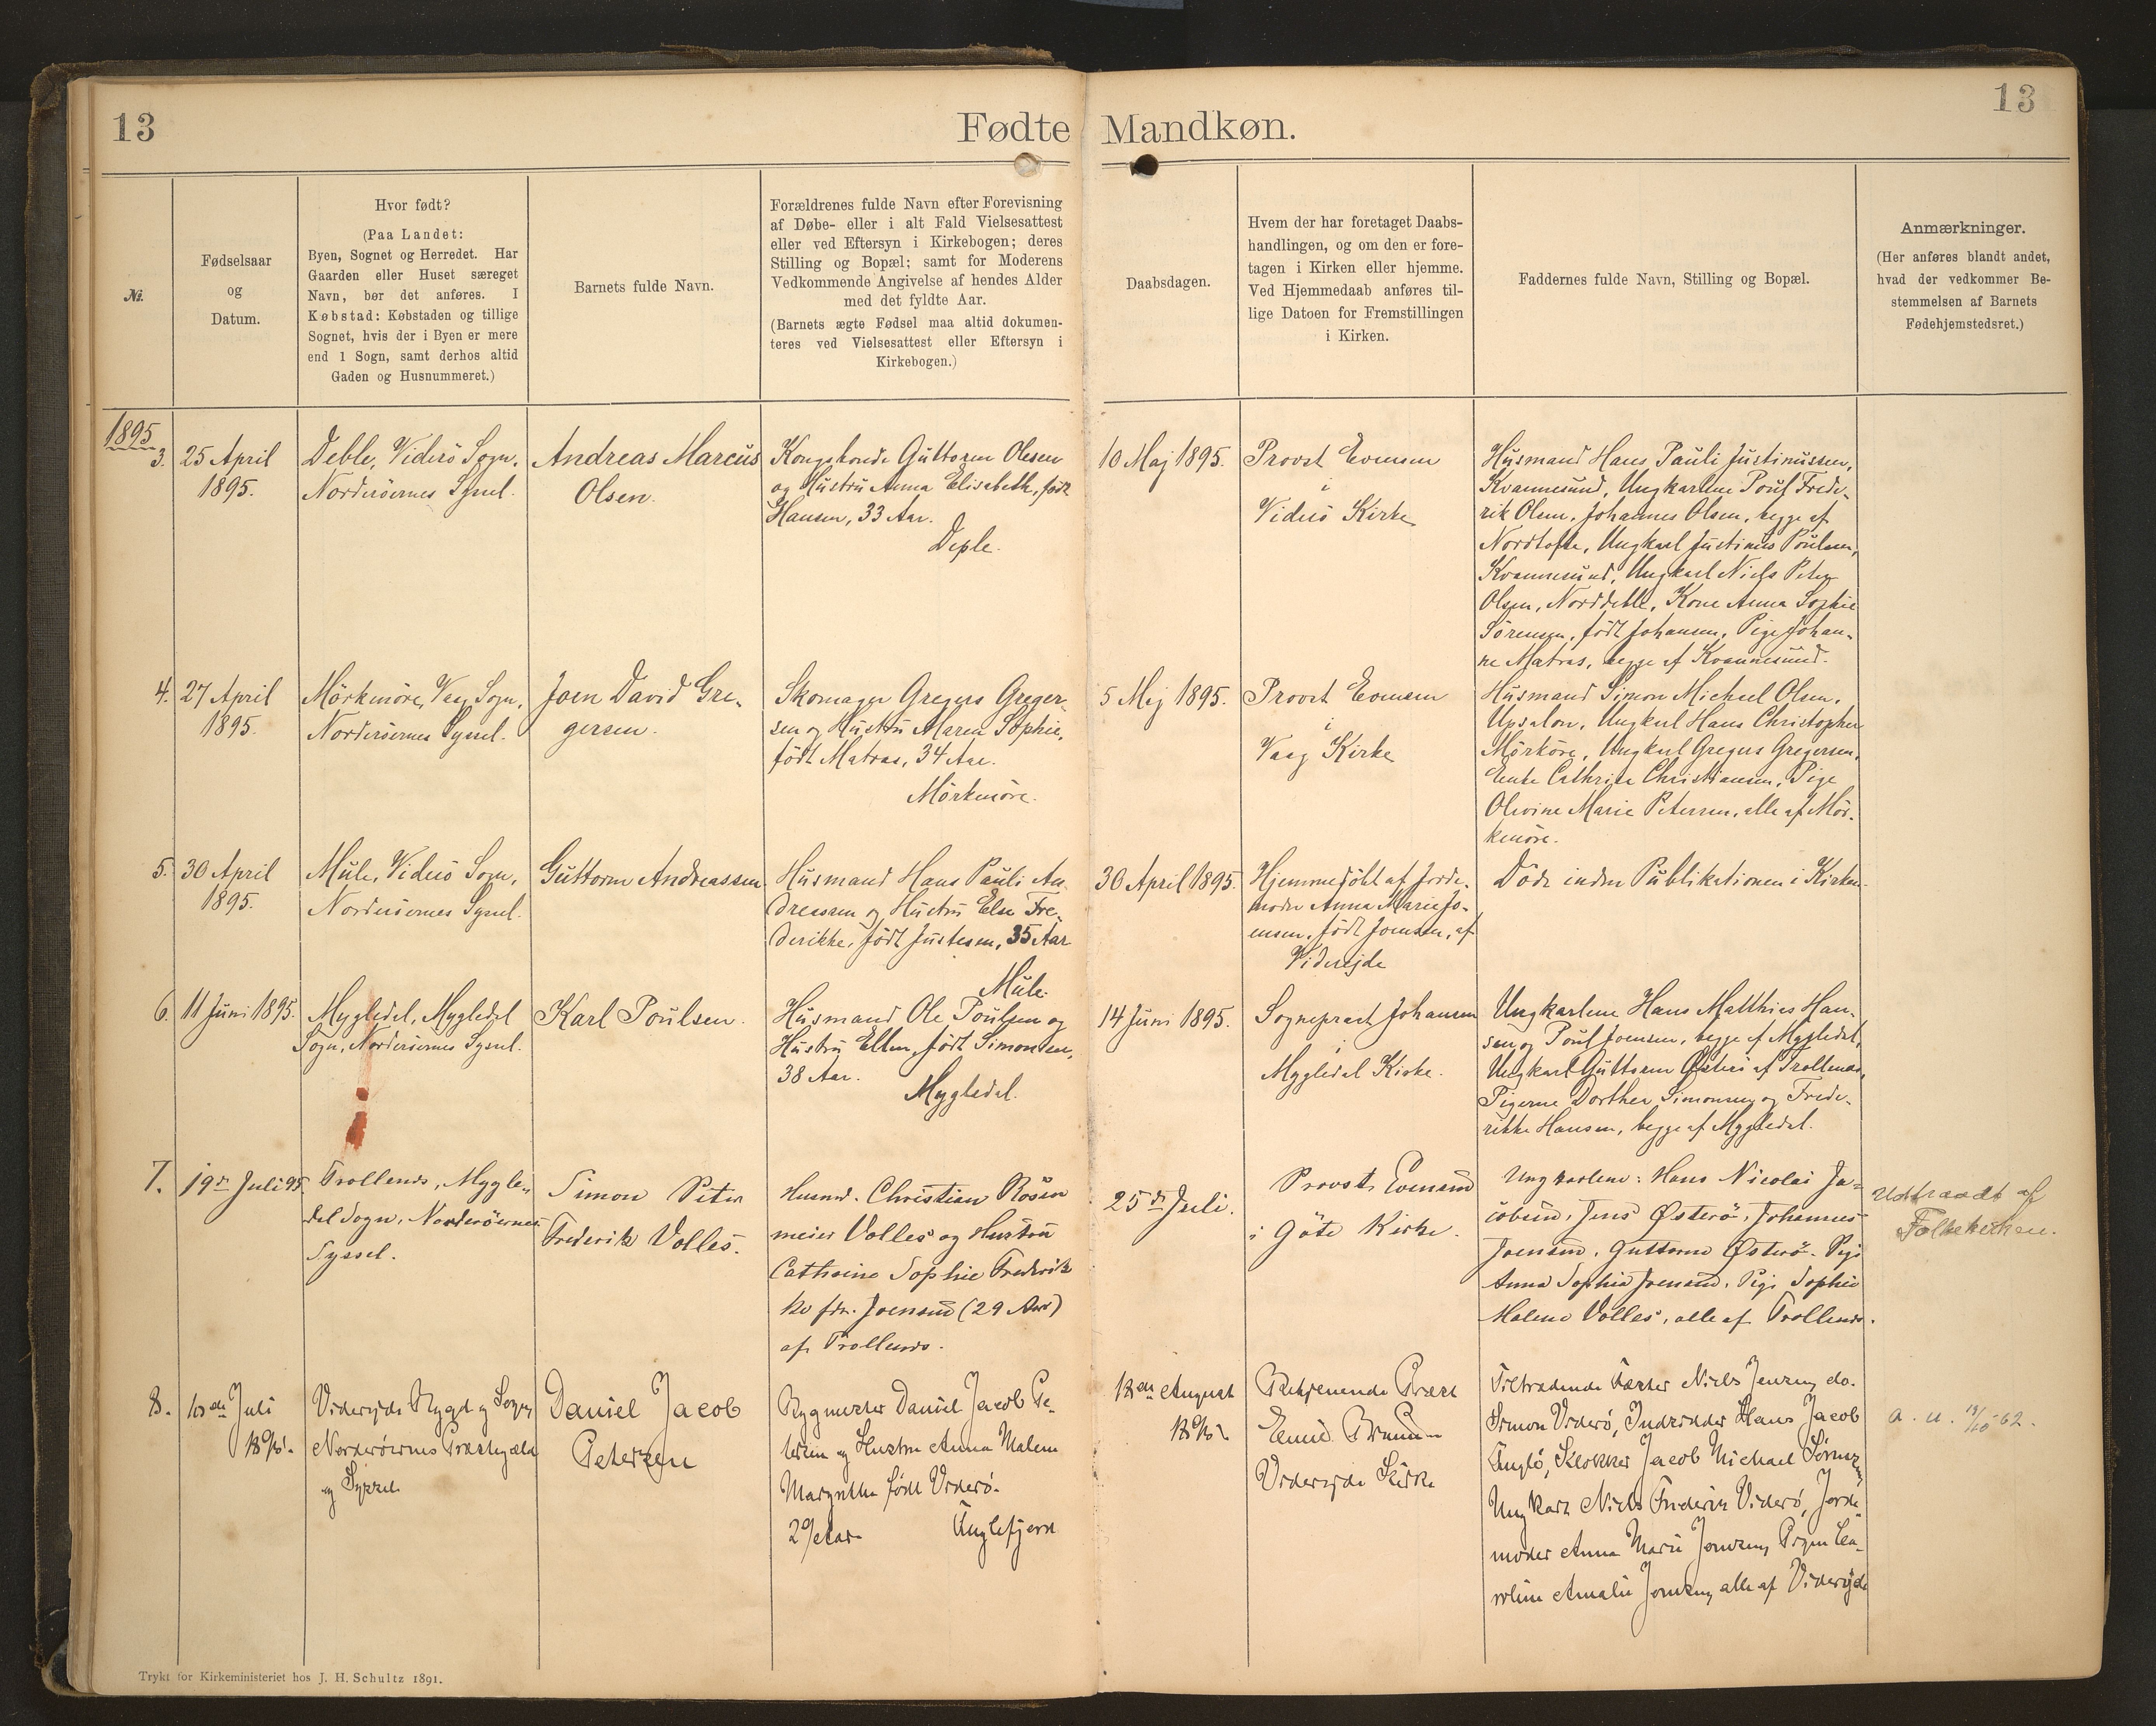 13
Fødte Mandkøn.
13
No.
Fødselsaar
og
Datum.
Hvor født?
(Paa Landet:
Byen, Sognet og Herredet. Har
Gaarden eller Huset særeget
Navn, bør det anføres. I
Købstad: Købstaden og tillige
Sognet, hvis der i Byen er mere
end 1 Sogn, samt derhos altid
Gaden og Husnummeret.)
Barnets fulde Navn.
Forældrenes fulde Navn efter Forevisning
af Døbe- eller i alt Fald Vielsesattest
eller ved Eftersyn i Kirkebogen; deres
Stilling og Bopæl; samt for Moderens
Vedkommende Angivelse af hendes Alder
med det fyldte Aar.
(Barnets ægte Fødsel maa altid dokumen-
teres ved Vielsesattest eller Eftersyn i
Kirkebogen.)
Daabsdagen.
Hvem der har foretaget Daabs-
handlingen, og om den er fore-
tagen i Kirken eller hjemme.
Ved Hjemmedaab anføres til-
lige Datoen for Fremstillingen
i Kirken.
Faddernes fulde Navn, Stilling og Bopæl.
Anmærkninger.
(Her anføres blandt andet,
hvad der vedkommer Be-
stemmelsen af Barnets
Fødehjemstedsret.)
1895
3.
25 April
1895.
Deble, Viderö Sogn,
Norderöernes Syssel.
Andreas Marcus
Olsen.
Kongsbonde Guttorm Olsen
og Hustru Anna Elisabeth, født
Hansen, 33 Aar.
Deple.
10 Maj 1895.
Provst Evensen
i
Viderö Kirke
Husmand Hans Pauli Justinussen,
Kvannesund, Ungkarlene Poul Frede-
rik Olsen, Johannes Olsen, begge af
Nordtofte, Ungkarl Justinus Poulsen,
Kvannesund, Ungkarl Niels Peter
Olsen, Norddeble, Kone Anna Sophie
Sörensen, født Johansen, Pige Johan-
ne Matras, begge af Kvannesund.
4.
27 April
1895.
Mörkenöre, Vaag Sogn,
Norderöernes Syssel.
Joen David Gre-
gersen.
Skomager Gregers Greger-
sen og Hustru Maren Sophie,
født Matras, 34 Aar.
Mörkenöre.
5 Maj 1895.
Provst Evensen
i
Vaag Kirke
Husmand Simon Michael Olsen,
Upsalon, Ungkarl Hans Christopher
Mörköre, Ungkarl Gregers Gregersen,
Enke Cathrine Christiansen, Pige
Olevine Marie Petersen, alle af Mör-
kenöre.
5.
30 April
1895.
Mule, Viderö Sogn,
Norderöernes Syssel.
Guttorm Andreassen
Husmand Hans Pauli An-
dreassen og Hustru Else Fre-
derikke, født Justesen, 35 Aar
Mule.
30 April 1895.
Hjemmedöbt af Jorde-
moder Anna Marie Jo-
ensen, født Joensen, af
Viderejde
Döde inden Publikationen i Kirken.
6.
11 Juni 1895.
Mygledal, Mygledal
Sogn, Norderöernes Syssel.
Karl Poulsen.
Husmand Ole Poulsen og
Hustru Ellen, født Simonsen,
38 Aar.
Mygledal.
14 Juni 1895.
Sognepræst Johansen
i
Mygledal Kirke.
Ungkarlene Hans Matthias Han-
sen og Poul Joensen, begge af Mygledal,
Ungkarl Guttorm Österö af Trollenæs,
Pigerne Dorthea Simonsen og Frede-
rikke Hansen, begge af Mygledal.
7.
19de Juli 95.
Trollenes, Mygle-
dal Sogn, Norderöernes
Syssel.
Simon Peter
Frederik Volles.
Husmd. Christian Rosen-
meier Volles og Hustru
Cathrine Sophie Frederik-
ke fdt. Joensen (29 Aar)
af Trollenes.
25de Juli.
Provst Evensen
i Göte Kirke.
Ungkarlene: Hans Nicolai Ja-
cobsen, Jens Österö, Johannes
Joensen, Guttorm Österö. Pige
Anna Sophia Joensen, Pige Sophie
Malene Volles, alle af Trollenes.
Udtraadt af
Folkekirken.
8.
Juli
Viderejde Bygd og Sogn,
Norderöernes Præstegæld
og Syssel
Daniel Jacob
Petersen
Bygmester Daniel Jacob Pe-
tersen og Hustru Anna Malene
Margrethe født Viderö.
29 Aar
Funglefjord
August
Betjenende Præst
Emil Bruun
Viderejde Kirke
Tiltrædende Fæster Niels Jensen, do.
Simon Viderö, Indsidder Hans Jacob
Fuglö, Klokker Jacob Michael Sörensen,
Ungkarl Niels Frederik Viderö, Jorde-
moder Anna Marie Joensen, Pigen
Amalie Joensen, alle af Viderejde
a. u. 18/10-62.
Trykt for Kirkeministeriet hos J. H. Schultz 1891.